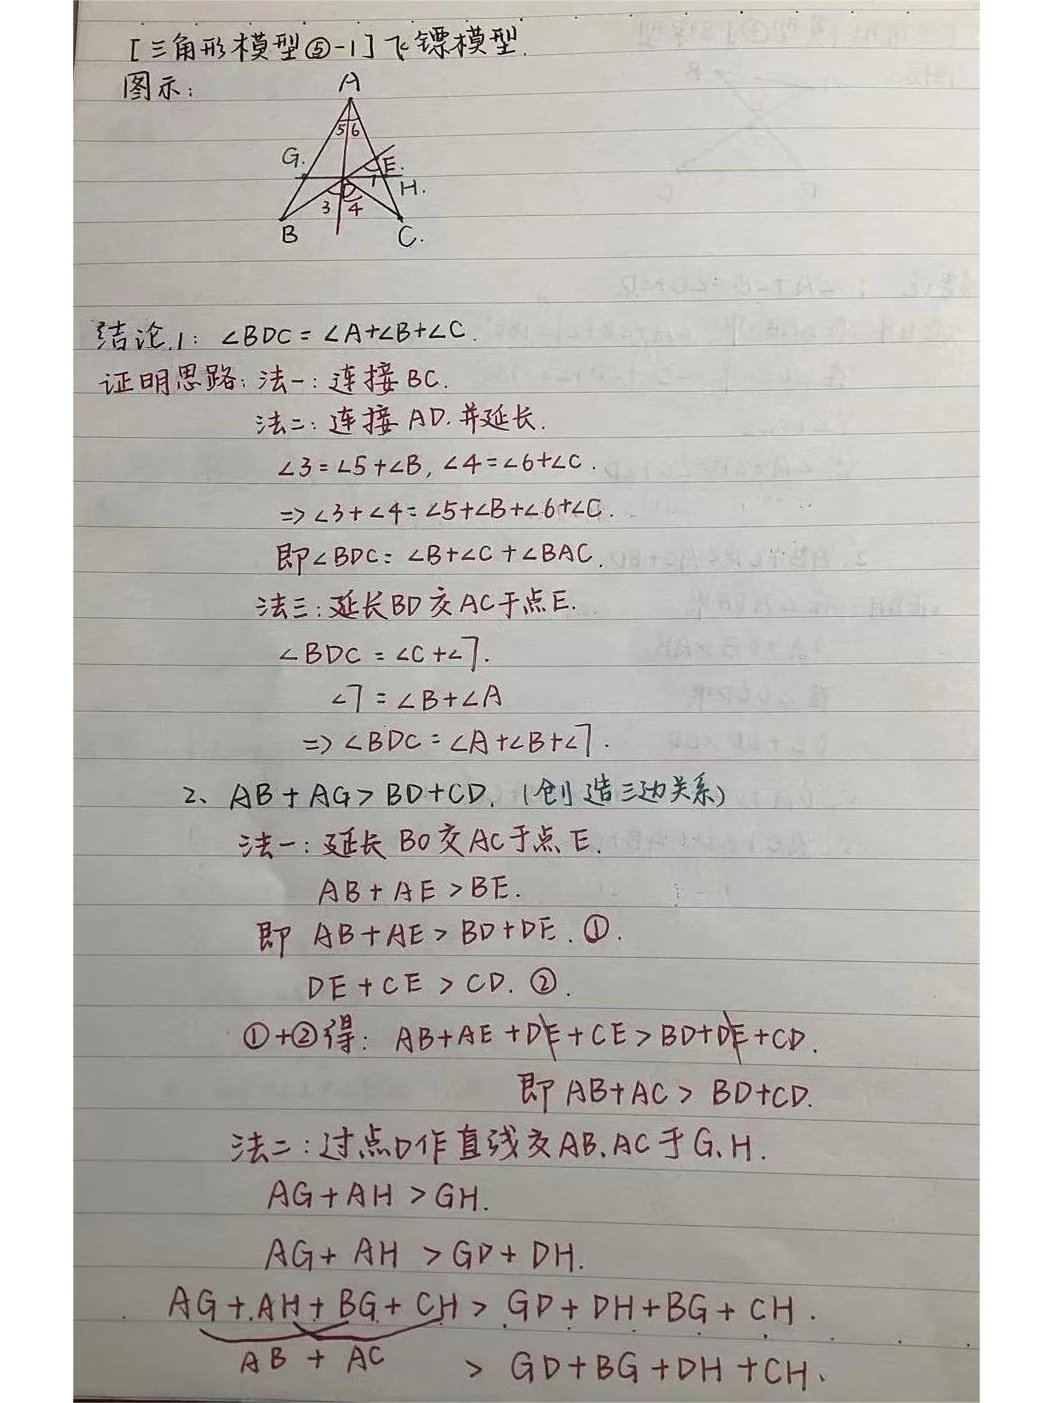 [三角形模型⑤-1]飞镖模型.
图示:
A
5 6
G. E.
D 7 H.
3 4
B C.
结论1: ∠BDC=∠A+∠B+∠C.
证明思路: 法一: 连接BC.
法二: 连接AD.并延长.
∠3=∠5+∠B, ∠4=∠6+∠C.
=>∠3+∠4=∠5+∠B+∠6+∠C.
即∠BDC=∠B+∠C+∠BAC.
法三: 延长BD交AC于点E.
∠BDC=∠C+∠7.
∠7=∠B+∠A
=>∠BDC=∠A+∠B+∠7.
2、AB+AG>BD+CD. (创造三边关系)
法一: 延长BO交AC于点E.
AB+AE>BE.
即 AB+AE>BD+DE. ①.
DE+CE>CD. ②.
①+②得: AB+AE+DE+CE>BD+DE+CD.
即AB+AC>BD+CD.
法二: 过点D作直线交AB.AC于G、H.
AG+AH>GH.
AG+AH>GD+DH.
AG+AH+BG+CH>GD+DH+BG+CH.
AB+AC >GD+BG+DH+CH.